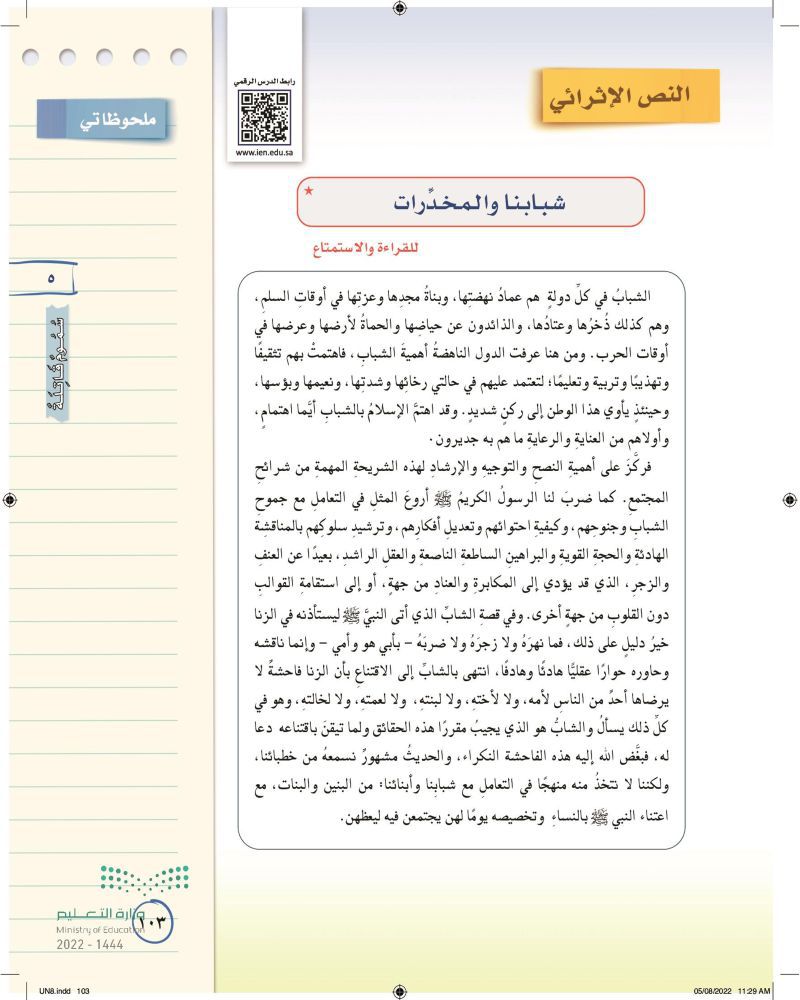 النص الإثرائي
رابط الدرس الرقمي
www.ien.edu.sa
ملحوظاتي
شبابنا والمخدِّرات
★
للقراءة والاستمتاع
٥
سُمُومٌ قَاتِلَةٌ
الشبابُ في كلِّ دولةٍ هم عمادُ نهضتِها، وبناةُ مجدِها وعزتِها في أوقاتِ السلمِ،
وهم كذلك ذُخرُها وعتادُها، والذائدون عن حياضِها والحماةُ لأرضِها وعرضِها في
أوقات الحرب. ومن هنا عرفت الدول الناهضةُ أهميةَ الشبابِ، فاهتمتْ بهم تثقيفًا
وتهذيبًا وتربية وتعليمًا؛ لتعتمد عليهم في حالتي رخائِها وشدتِها، ونعيمها وبؤسها،
وحينئذٍ يأوي هذا الوطن إلى ركنٍ شديدٍ. وقد اهتمَّ الإسلامُ بالشبابِ أيَّما اهتمامٍ،
وأولاهم من العنايةِ والرعايةِ ما هم به جديرون.
فركَّزَ على أهميةِ النصحِ والتوجيهِ والإرشادِ لهذه الشريحةِ المهمةِ من شرائحِ
المجتمعِ. كما ضربَ لنا الرسولُ الكريمُ ﷺ أروعَ المثلِ في التعاملِ مع جموحِ
الشبابِ وجنوحِهم، وكيفيةِ احتوائهم وتعديلِ أفكارِهم، وترشيدِ سلوكِهم بالمناقشةِ
الهادئةِ والحجةِ القويةِ والبراهين الساطعةِ الناصعةِ والعقلِ الراشدِ، بعيدًا عن العنفِ
والزجرِ، الذي قد يؤدي إلى المكابرةِ والعنادِ من جهةٍ، أو إلى استقامةِ القوالبِ
دون القلوبِ من جهةٍ أخرى. وفي قصةِ الشابِّ الذي أتى النبيَّ ﷺ ليستأذنه في الزنا
خيرُ دليلٍ على ذلك، فما نهرَهُ ولا زجرَهُ ولا ضربَهُ – بأبي هو وأمي – وإنما ناقشه
وحاوره حوارًا عقليًّا هادئًا وهادفًا، انتهى بالشابِّ إلى الاقتناعِ بأن الزنا فاحشةٌ لا
يرضاها أحدٌ من الناسِ لأمه، ولا لأختهِ، ولا لبنتهِ، ولا لعمتهِ، ولا لخالتهِ، وهو في
كلِّ ذلك يسألُ والشابُّ هو الذي يجيبُ مقررًا هذه الحقائق ولما تيقنَ باقتناعه دعا
له، فبغَّض الله إليه هذه الفاحشة النكراء، والحديثُ مشهورٌ نسمعهُ من خطبائنا،
ولكننا لا نتخذُ منه منهجًا في التعاملِ مع شبابِنا وأبنائنا: من البنين والبنات، مع
اعتناء النبي ﷺ بالنساءِ وتخصيصه يومًا لهن يجتمعن فيه ليعظهن.
وزارة التعليم
Ministry of Education
2022 - 1444
١٠٣
UN8.indd 103
05/08/2022 11:29 AM